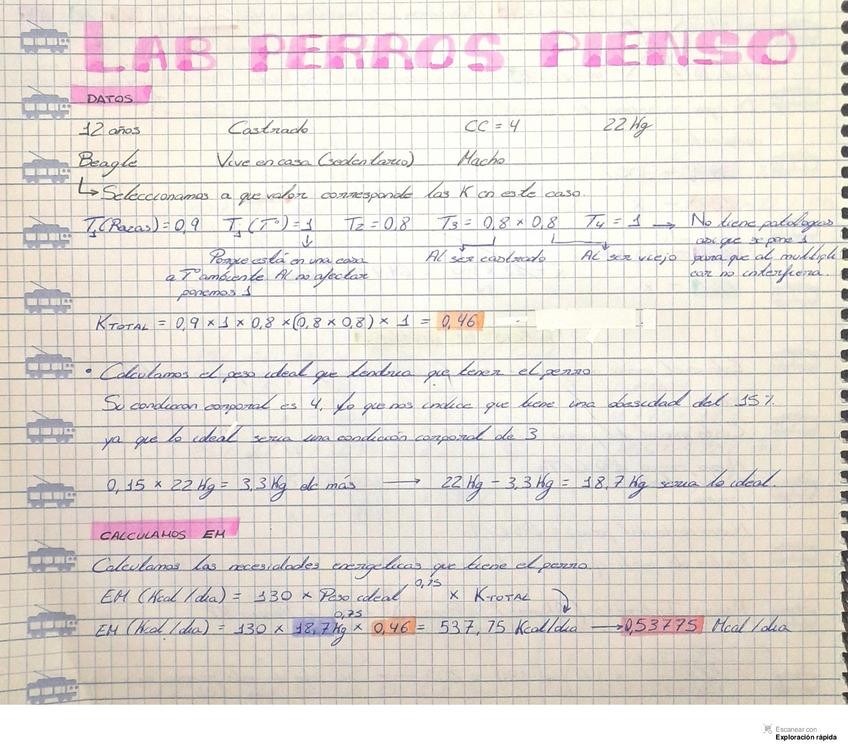 LAB PERROS PIENSO
DATOS
12 años Castrado CC = 4 22 Kg
Beagle Vive en casa (sedentario) Macho
↳ Seleccionamos a que valor corresponde las K en este caso.
T₁ (Razas) = 0,9 T₁ (Tº) = 1 T₂ = 0,8 T₃ = 0,8 x 0,8 T₄ = 1 → No tiene patologias
asi que se pone 1
para que al multipli
car no interfiera.
Porque está en una casa
a Tº ambiente. Al no afectar
ponemos 1
Al ser castrado Al ser viejo
KTOTAL = 0,9 x 1 x 0,8 x (0,8 x 0,8) x 1 = 0,46
• Calculamos el peso ideal que tendria que tener el perro
Su condicion corporal es 4, lo que nos indica que tiene una obesidad del 15%
ya que lo ideal seria una condición corporal de 3
0,15 x 22 Kg = 3,3 Kg de más → 22 Kg - 3,3 Kg = 18,7 Kg seria lo ideal.
CALCULAMOS EM
Calculamos las necesidades energéticas que tiene el perro.
EM (Kcal / dia) = 130 x Peso ideal^0,75 x KTOTAL
EM (Kcal / dia) = 130 x 18,7 Kg^0,75 x 0,46 = 537,75 Kcal/dia → 0,53775 Mcal / dia
Escanear con
Exploración rápida